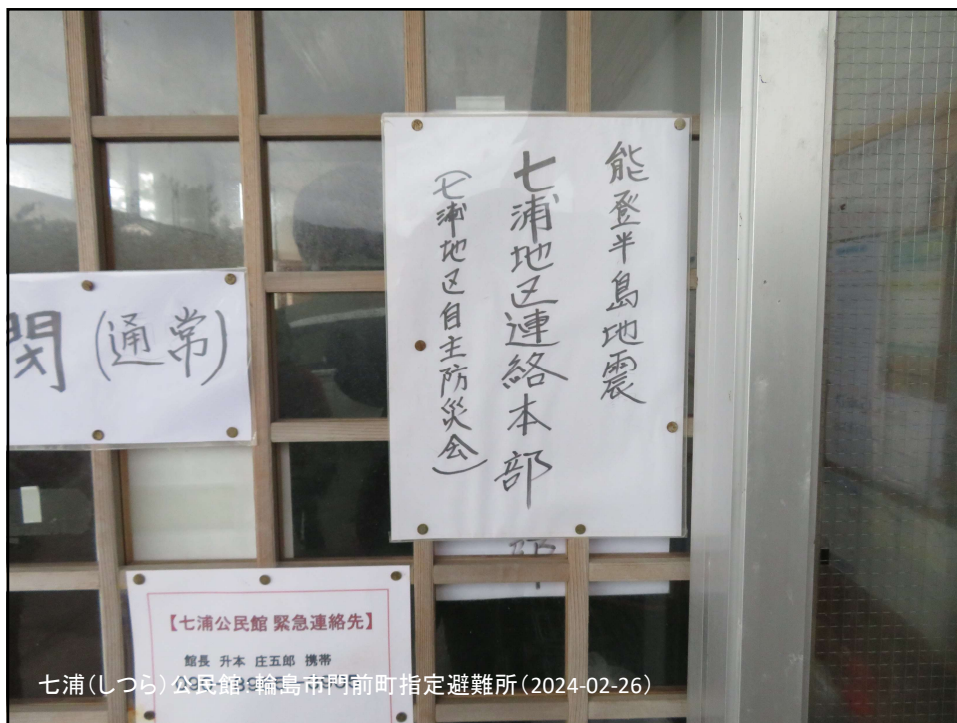 能登半島地震
七浦地区連絡本部
(七浦地区自主防災会)
閉(通常)
【七浦公民館 緊急連絡先】
館長 升本 庄五郎 携帯
七浦(しつら)公民館 輪島市門前町指定避難所(2024-02-26)